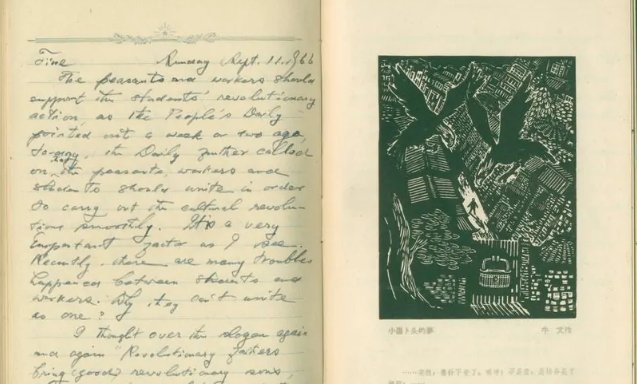 Fine Sunday Sept. 11. 1966
The peasants and workers should
support the students' revolutionary
action, as the People's Daily
pointed out a week or two ago,
today, the Daily further called
on the peasants, workers and
students should unite in order
to carry out the cultural revolu-
tions smoothly. It is a very
important factor as I see.
Recently there are many troubles
happened between students and
workers. Why they can't unite
as one?
I thought over the slogan again
and again "Revolutionary fathers
bring (good) revolutionary sons,
小蘿卜头的夢
牛 文作